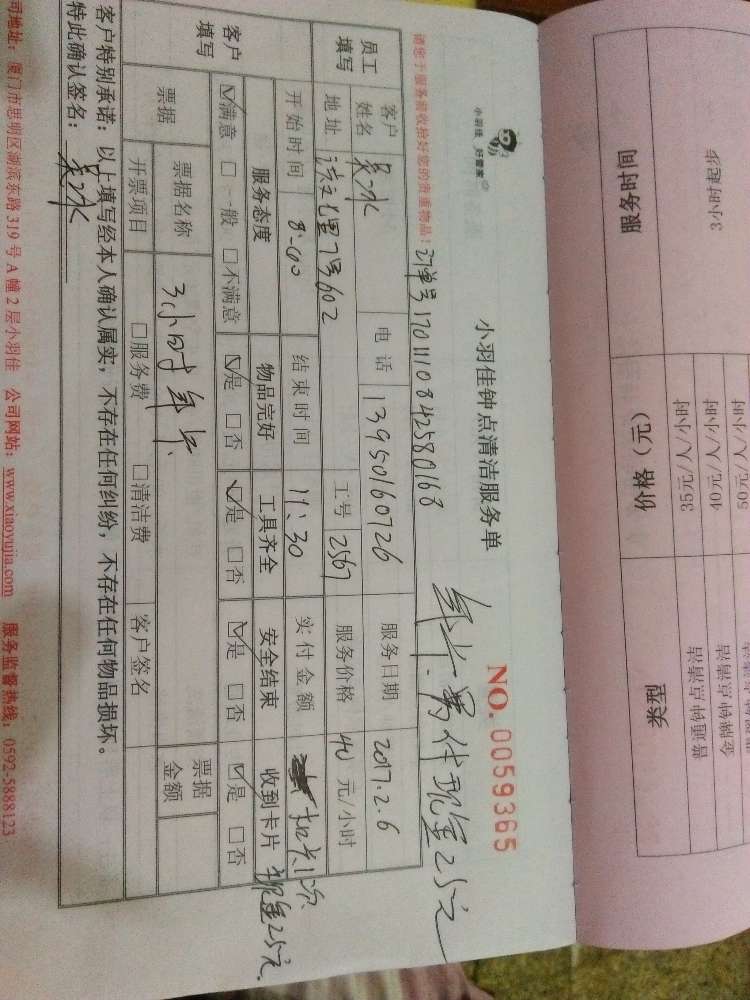 服务时间 价格（元） 类型
3小时起步 35元/人/小时 普通钟点清洁
40元/人/小时 金牌钟点清洁
50元/人/小时
小羽佳 好管家
小羽佳钟点清洁服务单
NO.0059365
请您于服务前收拾好您的贵重物品！
订单号1701110842580168
年卡.
代现金25元
员工填写 客户姓名 吴冰 电话 13950160726 服务日期 2017.2.6
地址 7号602 工号 2567 服务价格 40 元/小时
开始时间 8:00 结束时间 11:30 实付金额 扣卡1次.
现金25元.
客户填写 服务态度 物品完好 工具齐全 安全结束 收到卡片
☑满意 □一般 □不满意 ☑是 □否 ☑是 □否 ☑是 □否 ☑是 □否
票据 票据名称 3小时年卡. 票据金额
开票项目 □服务费 □清洁费 客户签名
客户特别承诺：以上填写经本人确认属实，不存在任何纠纷，不存在任何物品损坏。
特此确认签名：吴冰
司地址：厦门市思明区湖滨东路319号A幢2层小羽佳 公司网站：www.xiaoyujia.com 服务监督热线：0592-5888123